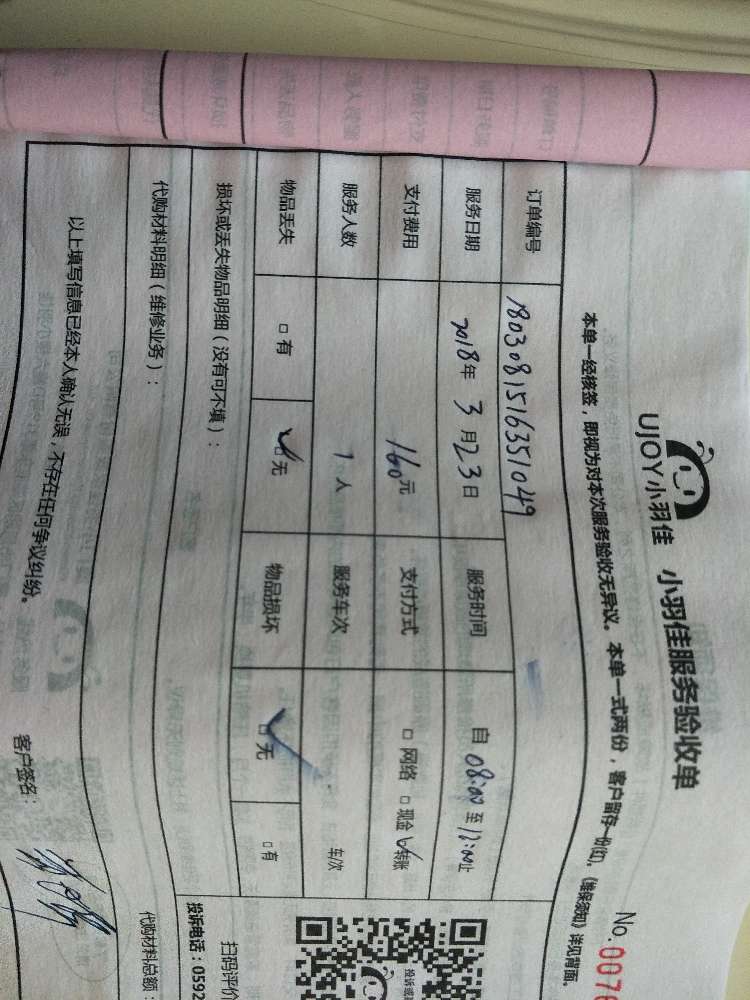 UJOY小羽佳 小羽佳服务验收单
No.0076
本单一经核签，即视为对本次服务验收无异议。本单一式两份，客户留存一份(红)。《维保须知》详见背面。
订单编号 180308151635104 9
服务日期 2018年3月23日 服务时间 自08:00至12:00止
支付费用 160元 支付方式 □网络 □现金 ✓转账
服务人数 1人 服务车次 车次
物品丢失 □有 ✓无 物品损坏 ✓无 □有
损坏或丢失物品明细（没有可不填）：
代购材料明细（维修业务）： 代购材料总额：
以上填写信息已经本人确认无误，不存在任何争议纠纷。
客户签名：
扫码评价
投诉电话：0592